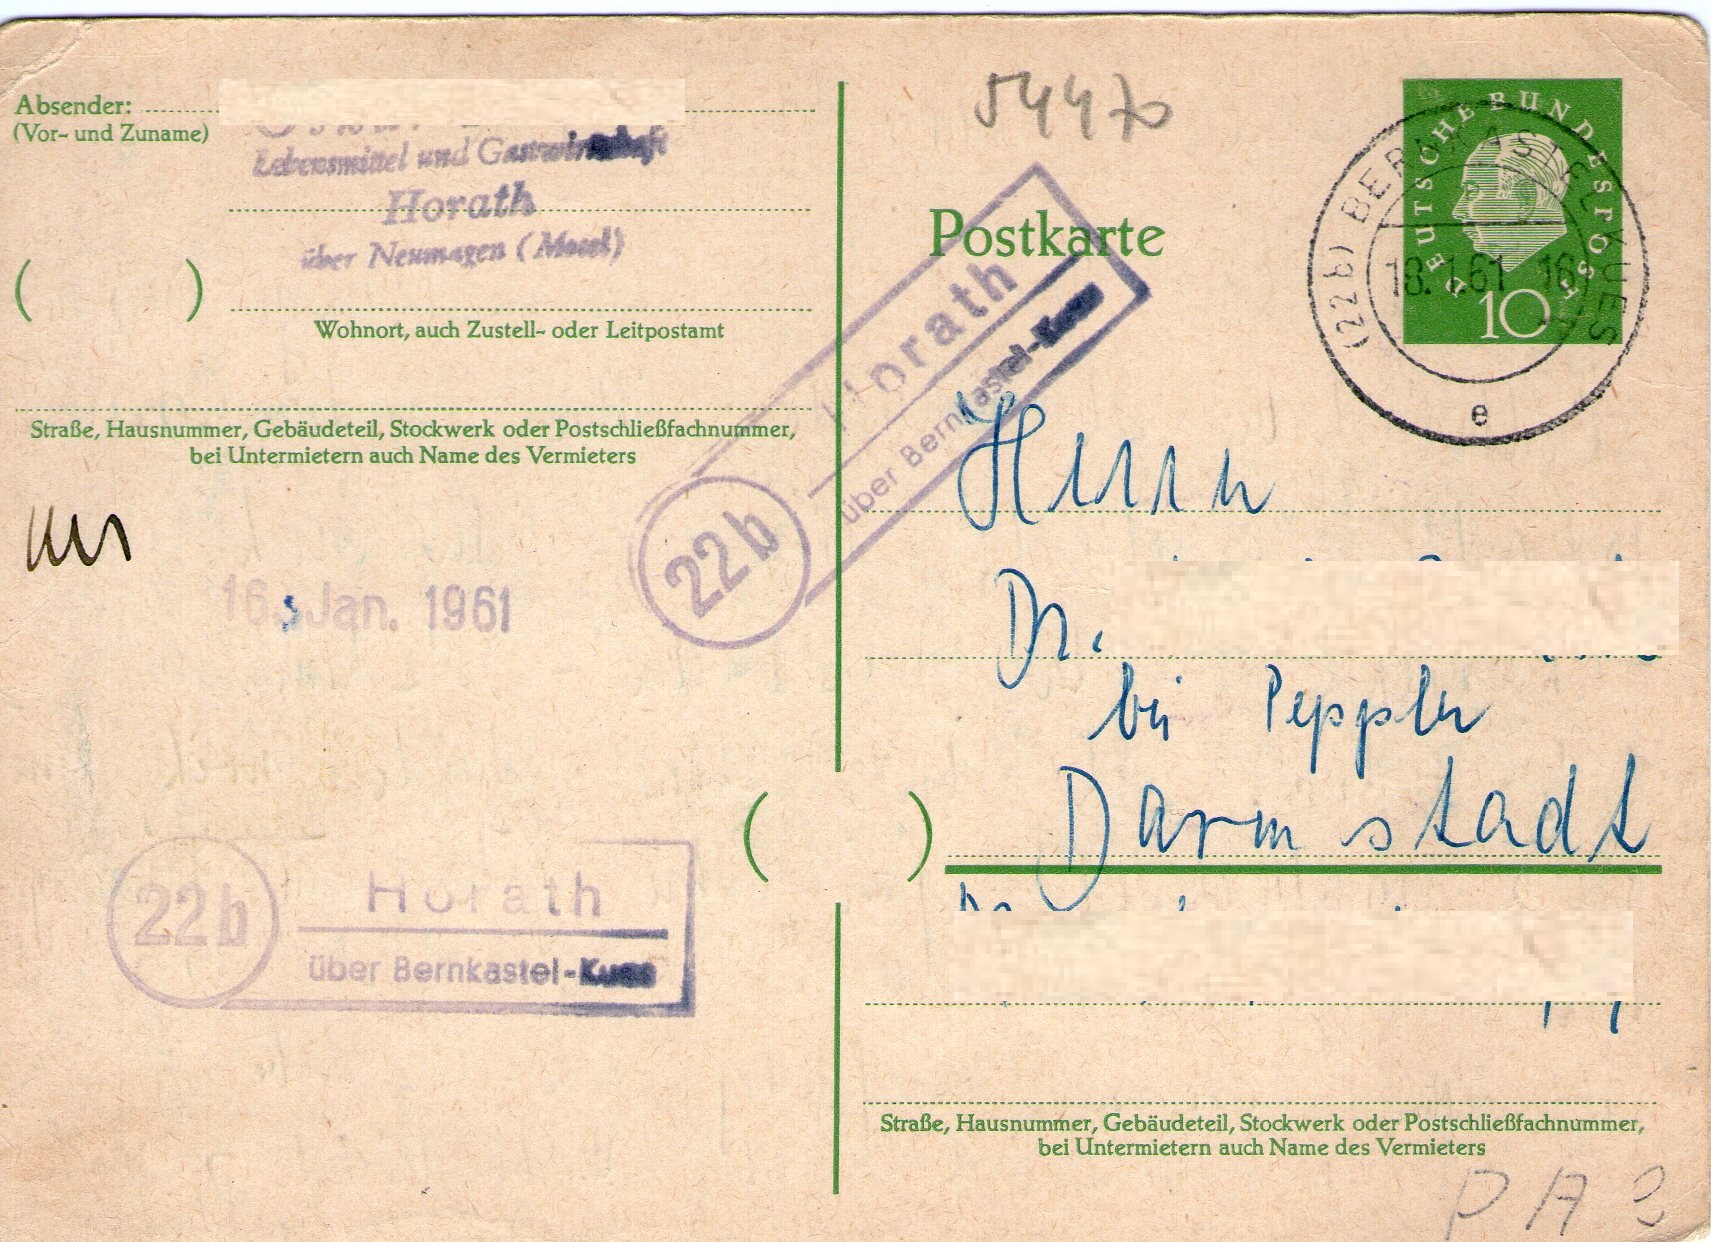 Absender:
(Vor- und Zuname)
Lebensmittel und Gastwirtschaft
Horath
über Neumagen (Mosel)
( )
Wohnort, auch Zustell- oder Leitpostamt
Straße, Hausnummer, Gebäudeteil, Stockwerk oder Postschließfachnummer,
bei Untermietern auch Name des Vermieters
16. Jan. 1961
22b
Horath
über Bernkastel-Kues
54470
Postkarte
22b
Horath
über Bernkastel-Kues
DEUTSCHE BUNDESPOST
10
(22b) BERNKASTEL-KUES
18.1.61 16
e
Herrn
Dr.
bei Peppler
( ) Darmstadt
Straße, Hausnummer, Gebäudeteil, Stockwerk oder Postschließfachnummer,
bei Untermietern auch Name des Vermieters
PA